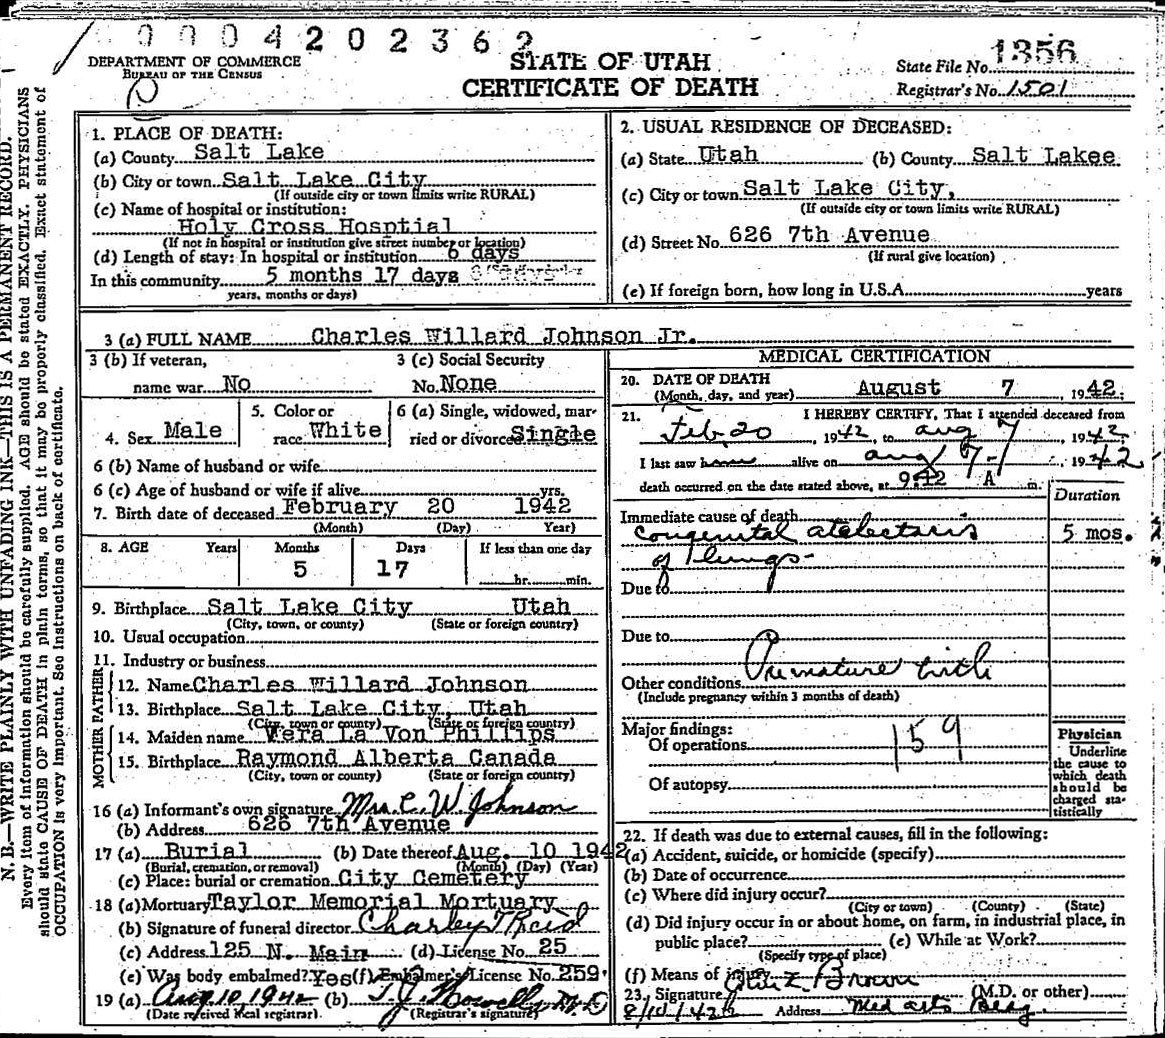 0004202362
DEPARTMENT OF COMMERCE
BUREAU OF THE CENSUS
STATE OF UTAH
CERTIFICATE OF DEATH
State File No. 1356
Registrar's No. 1501
N. B.—WRITE PLAINLY WITH UNFADING INK—THIS IS A PERMANENT RECORD.
Every item of information should be carefully supplied. AGE should be stated EXACTLY. PHYSICIANS
should state CAUSE OF DEATH in plain terms, so that it may be properly classified. Exact statement of
OCCUPATION is very important. See instructions on back of certificate.
1. PLACE OF DEATH:
(a) County Salt Lake
(b) City or town Salt Lake City
(If outside city or town limits write RURAL)
(c) Name of hospital or institution:
Holy Cross Hosptial
(If not in hospital or institution give street number or location)
(d) Length of stay: In hospital or institution 6 days
In this community 5 months 17 days
years, months or days)
2. USUAL RESIDENCE OF DECEASED:
(a) State Utah (b) County Salt Lakee
(c) City or town Salt Lake City,
(If outside city or town limits write RURAL)
(d) Street No 626 7th Avenue
(If rural give location)
(e) If foreign born, how long in U.S.A. years
3 (a) FULL NAME Charles Willard Johnson Jr.
3 (b) If veteran, 3 (c) Social Security
name war No No. None
4. Sex Male 5. Color or race White 6 (a) Single, widowed, married or divorced Single
6 (b) Name of husband or wife
6 (c) Age of husband or wife if alive yrs.
7. Birth date of deceased February 20 1942
(Month) (Day) Year)
8. AGE Years Months Days If less than one day
5 17 hr. min.
9. Birthplace Salt Lake City Utah
(City, town, or county) (State or foreign country)
10. Usual occupation
11. Industry or business
FATHER
12. Name Charles Willard Johnson
13. Birthplace Salt Lake City, Utah
(City, town or county) (State or foreign country)
MOTHER
14. Maiden name Vera La Von Phillips
15. Birthplace Raymond Alberta Canada
(City, town or county) (State or foreign country)
16 (a) Informant's own signature Mrs. C. W. Johnson
(b) Address 626 7th Avenue
17 (a) Burial (b) Date thereof Aug. 10 1942
(Burial, cremation, or removal) (Month) (Day) (Year)
(c) Place: burial or cremation City Cemetery
18 (a) Mortuary Taylor Memorial Mortuary
(b) Signature of funeral director Charley T Reid
(c) Address 125 N. Main (d) License No. 25
(e) Was body embalmed? Yes (f) Embalmer's License No. 259
19 (a) Aug 10, 1942 (b) M.D
(Date received local registrar) (Registrar's signature)
MEDICAL CERTIFICATION
20. DATE OF DEATH August 7 1942;
(Month, day, and year)
21. I HEREBY CERTIFY, That I attended deceased from
Feb 20, 1942, to aug 7, 1942
I last saw him alive on aug 7-, 1942
death occurred on the date stated above, at 9:42 A m.
Duration
Immediate cause of death
Congenital atelectasis 5 mos.
of lungs-
Due to
Due to
Premature birth
Other conditions
(Include pregnancy within 3 months of death)
Major findings: 159
Of operations
Of autopsy
Physician
Underline
the cause to
which death
should be
charged sta-
tistically
22. If death was due to external causes, fill in the following:
(a) Accident, suicide, or homicide (specify)
(b) Date of occurrence
(c) Where did injury occur?
(City or town) (County) (State)
(d) Did injury occur in or about home, on farm, in industrial place, in
public place? (e) While at Work?
(Specify type of place)
(f) Means of injury
23. Signature Brown (M.D. or other)
8/10/42 Address Med arts Bldg.